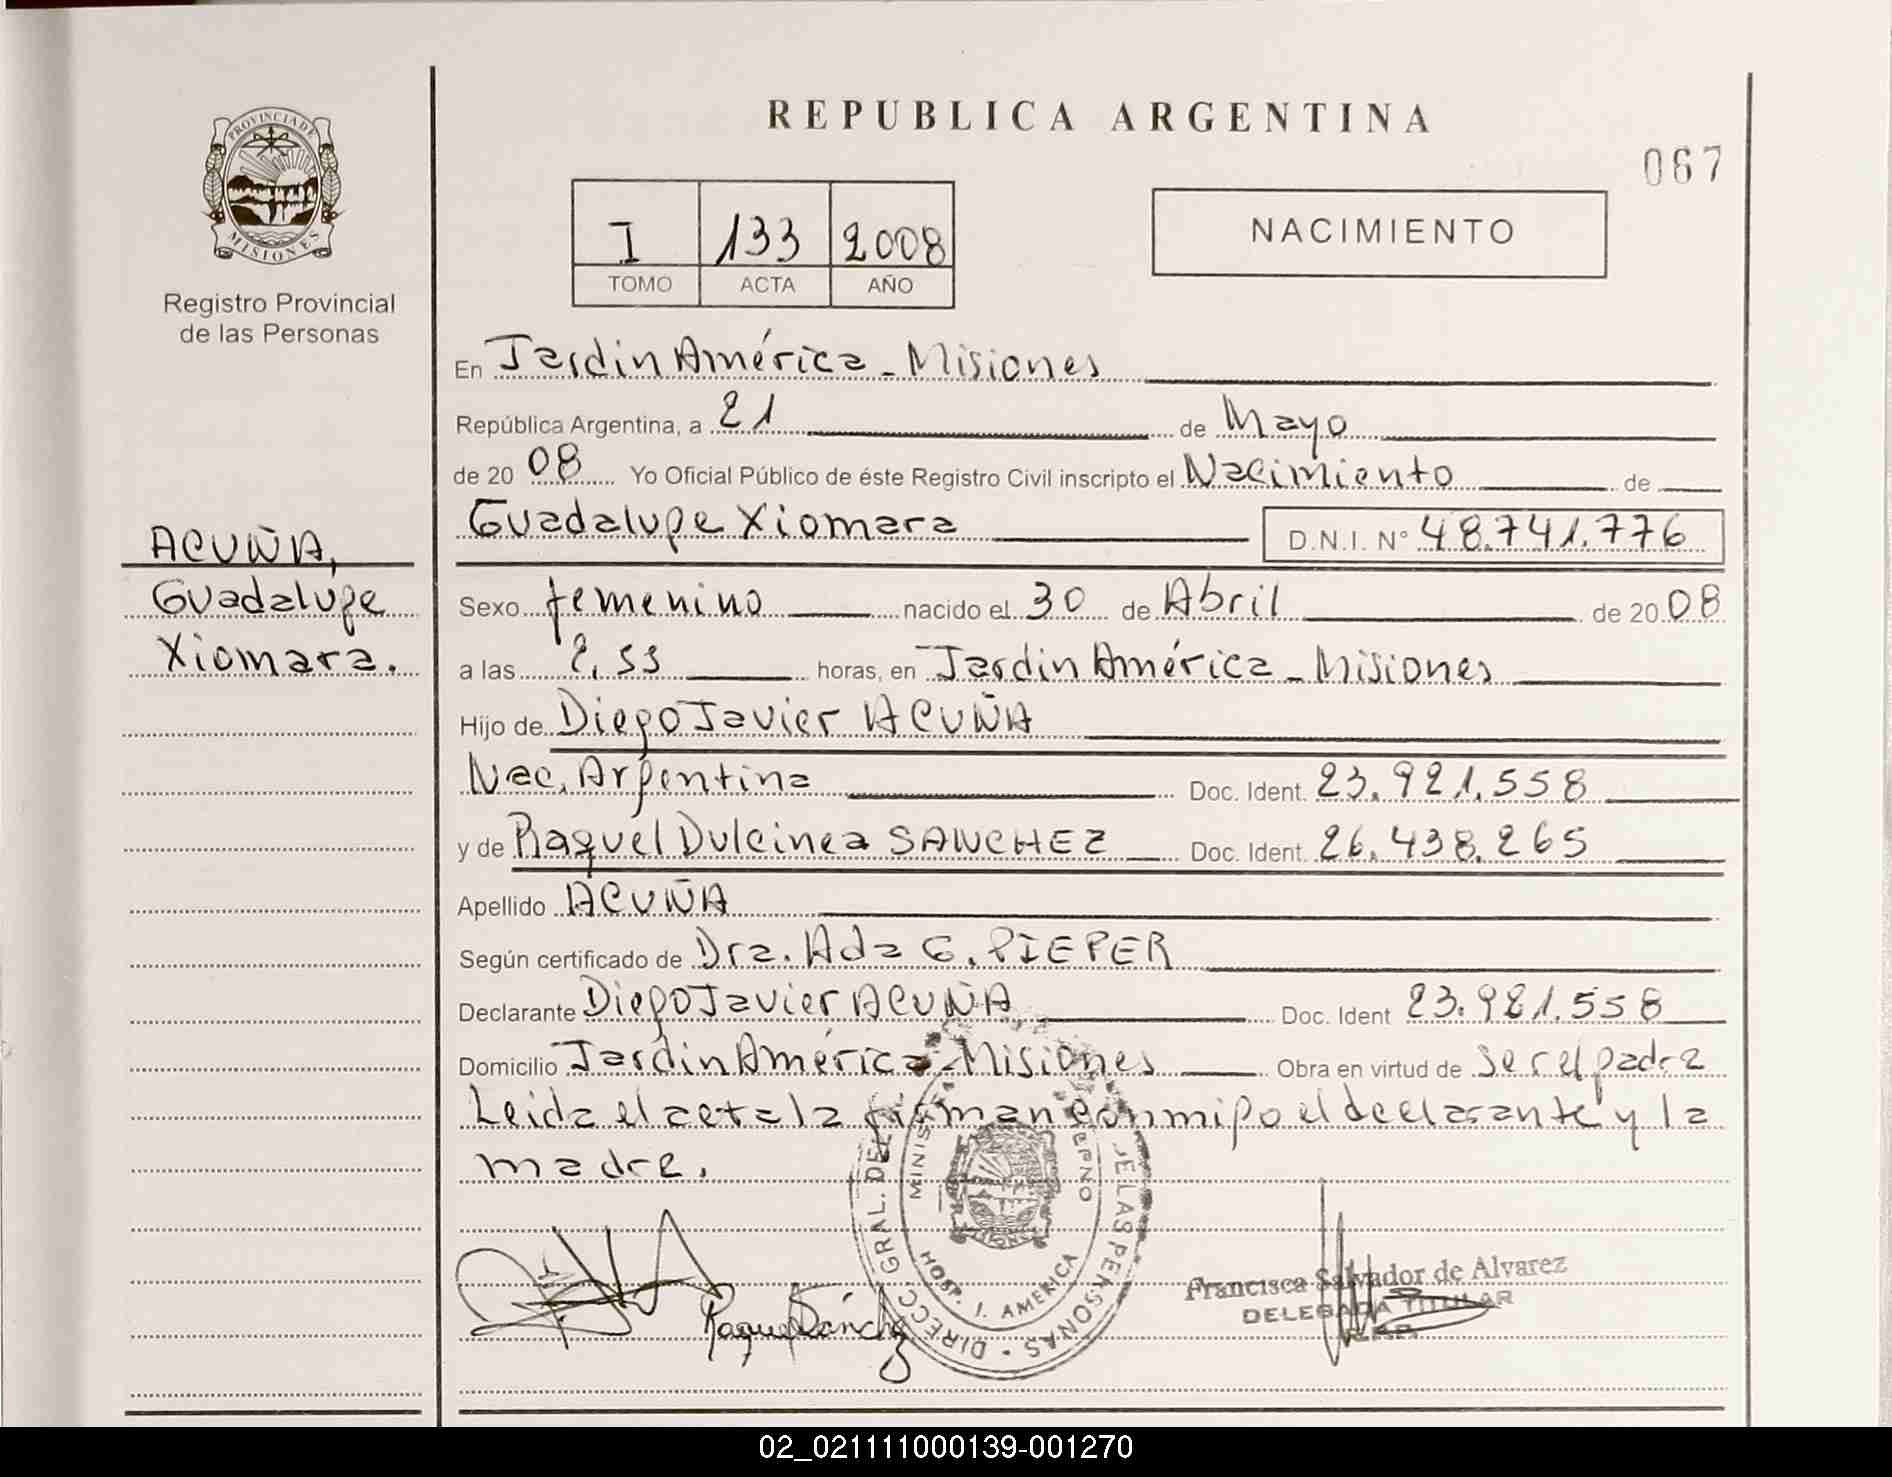 PROVINCIA DE
MISIONES
Registro Provincial
de las Personas
ACUÑA,
Guadalupe
Xiomara.
REPUBLICA ARGENTINA
067
I 133 2008
TOMO ACTA AÑO
NACIMIENTO
En Jardin América - Misiones
República Argentina, a 21 de Mayo
de 20 08 Yo Oficial Público de éste Registro Civil inscripto el Nacimiento de
Guadalupe Xiomara D.N.I. N° 48.741.776
Sexo femenino nacido el 30 de Abril de 20 08
a las horas, en Jardin América - Misiones
Hijo de Diego Javier ACUÑA
Nac. Argentina Doc. Ident. 23.921.558
y de Raquel Dulcinea SANCHEZ Doc. Ident. 26.438.265
Apellido ACUÑA
Según certificado de Dra. Ada G. PIEPER
Declarante Diego Javier ACUÑA Doc. Ident 23.921.558
Domicilio Jardin América - Misiones Obra en virtud de ser el padre
Leida el acta la firman conmigo el declarante y la
madre.
DIRECC. GRAL. DEL DE LAS PERSONAS
HOSP. J. AMERICA
Raquel Sánchez
Francisca Salvador de Alvarez
DELEGADA TITULAR
02_021111000139-001270